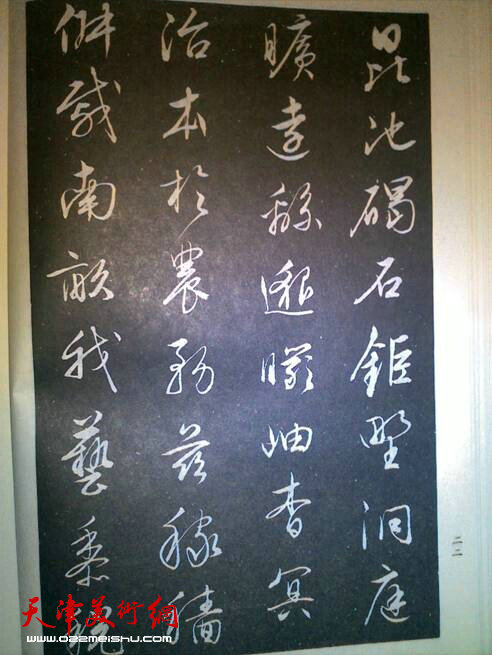 昆池碣石鉅野洞庭
曠遠緜邈巖岫杳冥
治本於農務茲稼穡
俶載南畝我藝黍稷
二二
天津美術網
www.022meishu.com